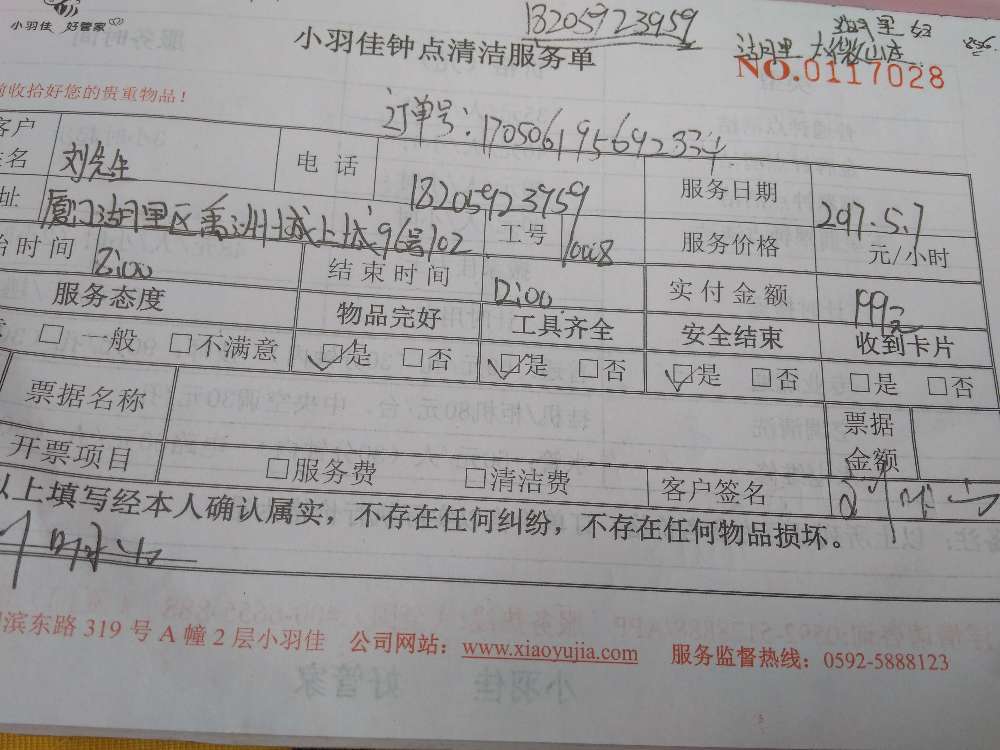 小羽佳 好管家
18205923959
湖里
小羽佳钟点清洁服务单
湖里
NO.0117028
前收拾好您的贵重物品！
订单号：
客户姓名 刘先生 电话 18205923959 服务日期 5.7
址 厦门湖里区禹洲城上城96号102 工号 10008 服务价格 元/小时
始时间 8:00 结束时间 12:00 实付金额 199元
服务态度 物品完好 工具齐全 安全结束 收到卡片
□一般 □不满意 □是 □否 □是 □否 □是 □否 □是 □否
票据名称 票据金额
开票项目 □服务费 □清洁费 客户签名
以上填写经本人确认属实，不存在任何纠纷，不存在任何物品损坏。
滨东路 319 号 A 幢 2 层小羽佳 公司网站：www.xiaoyujia.com 服务监督热线：0592-5888123